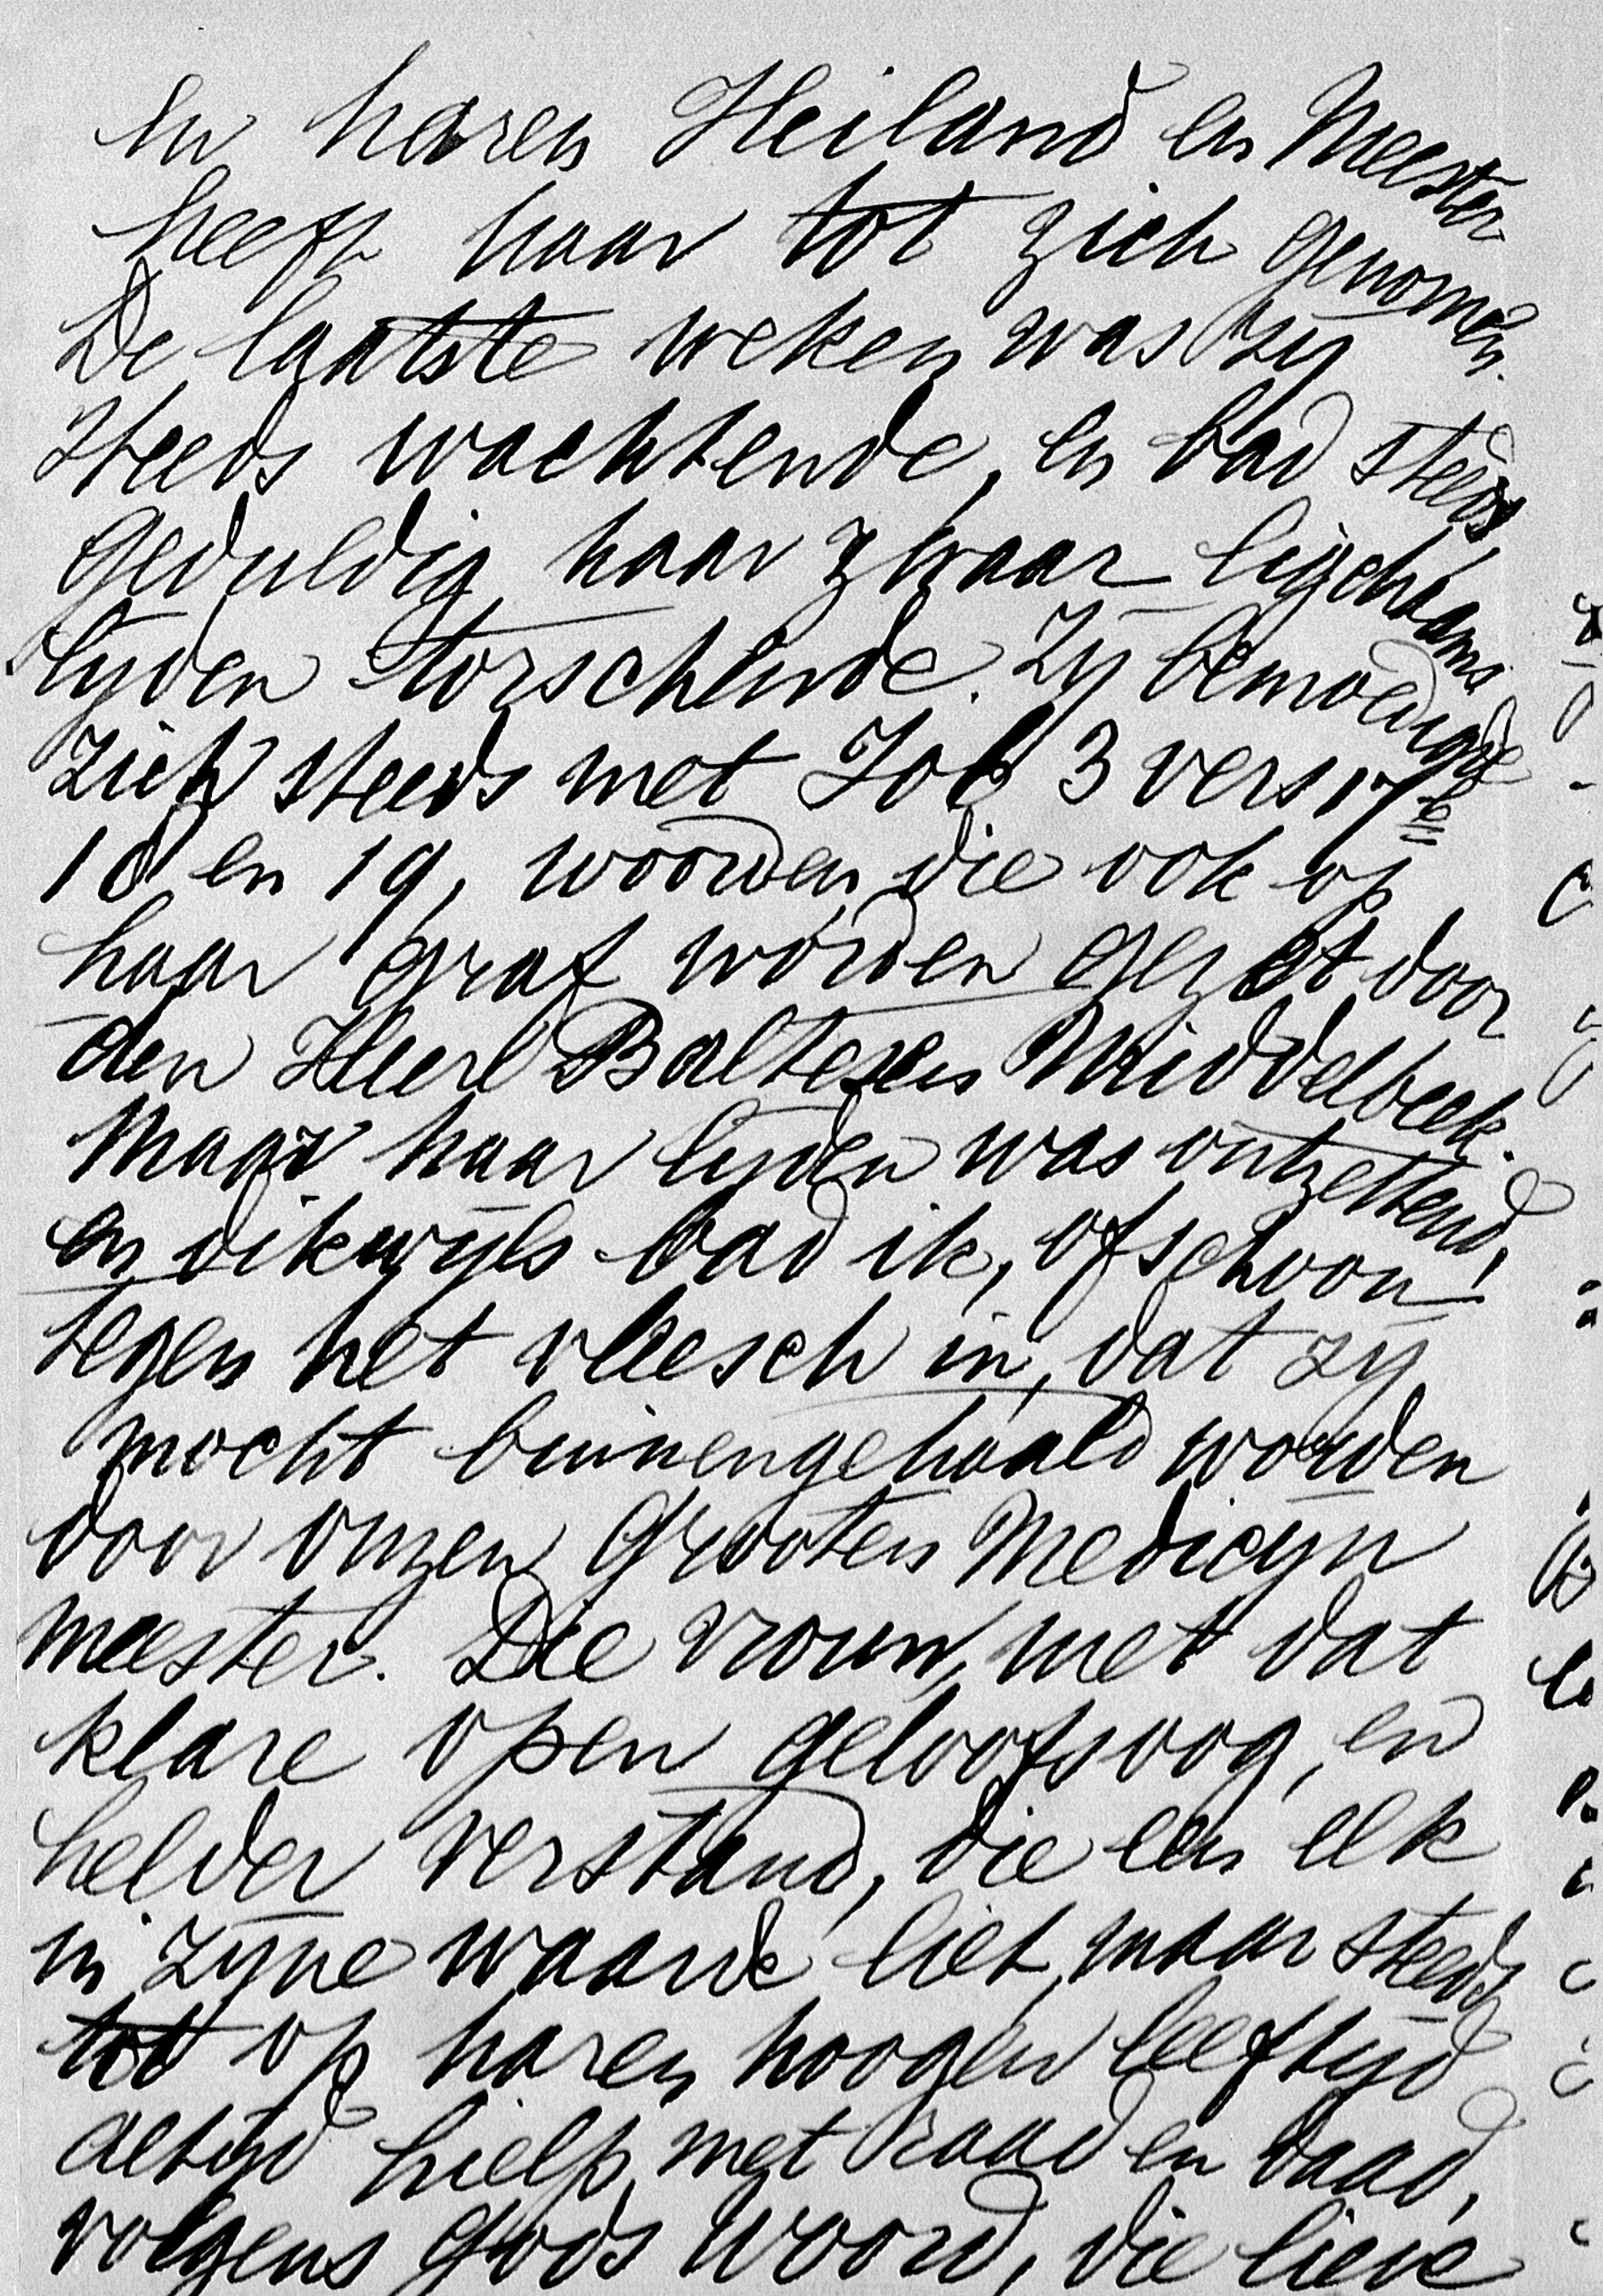 En haren Heiland en Meester
heeft haar tot zich genomen.
De laatste weken was zij
steeds wachtende, en bad steeds
geduldig haar zwaar ligchaams
lijden torschende. Zij bemoedigde
zich steeds met Job 3 vers 17en
18 en 19, woorden, die ook op
haar graf worden gezet door
den Heere Baltesen Middelbeek.
Maar haar lijden was ontzettend,
en dikwijls bad ik, ofschoon
tegen het vleesch in, dat zij
mocht binnengehaald worden
door onzen Grooten Medicijn
meester. Die vrouw, met dat
klare open geloofsoog, en
helder verstand, die een elk
in zijne waarde liet, maar steeds
tot op haren hoogen leeftijd
altijd hielp met raad en daad,
volgens Gods Woord, die lieve